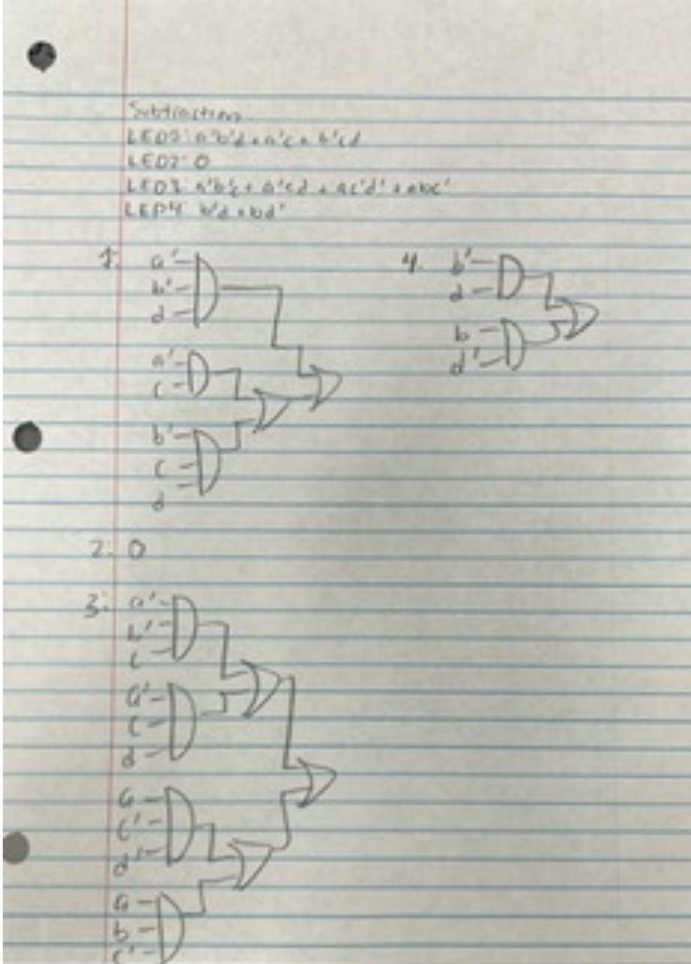 Subtraction:
LED1: a'b'd + a'c + b'cd
LED2: 0
LED3: a'b'c + a'cd + ac'd' + abc'
LED4: b'd + bd'
1. a'
b'
d
a'
c
b'
c
d
4. b'
d
b
d'
2. 0
3. a'
b'
c
a'
c
d
a
c'
d'
a
b
c'